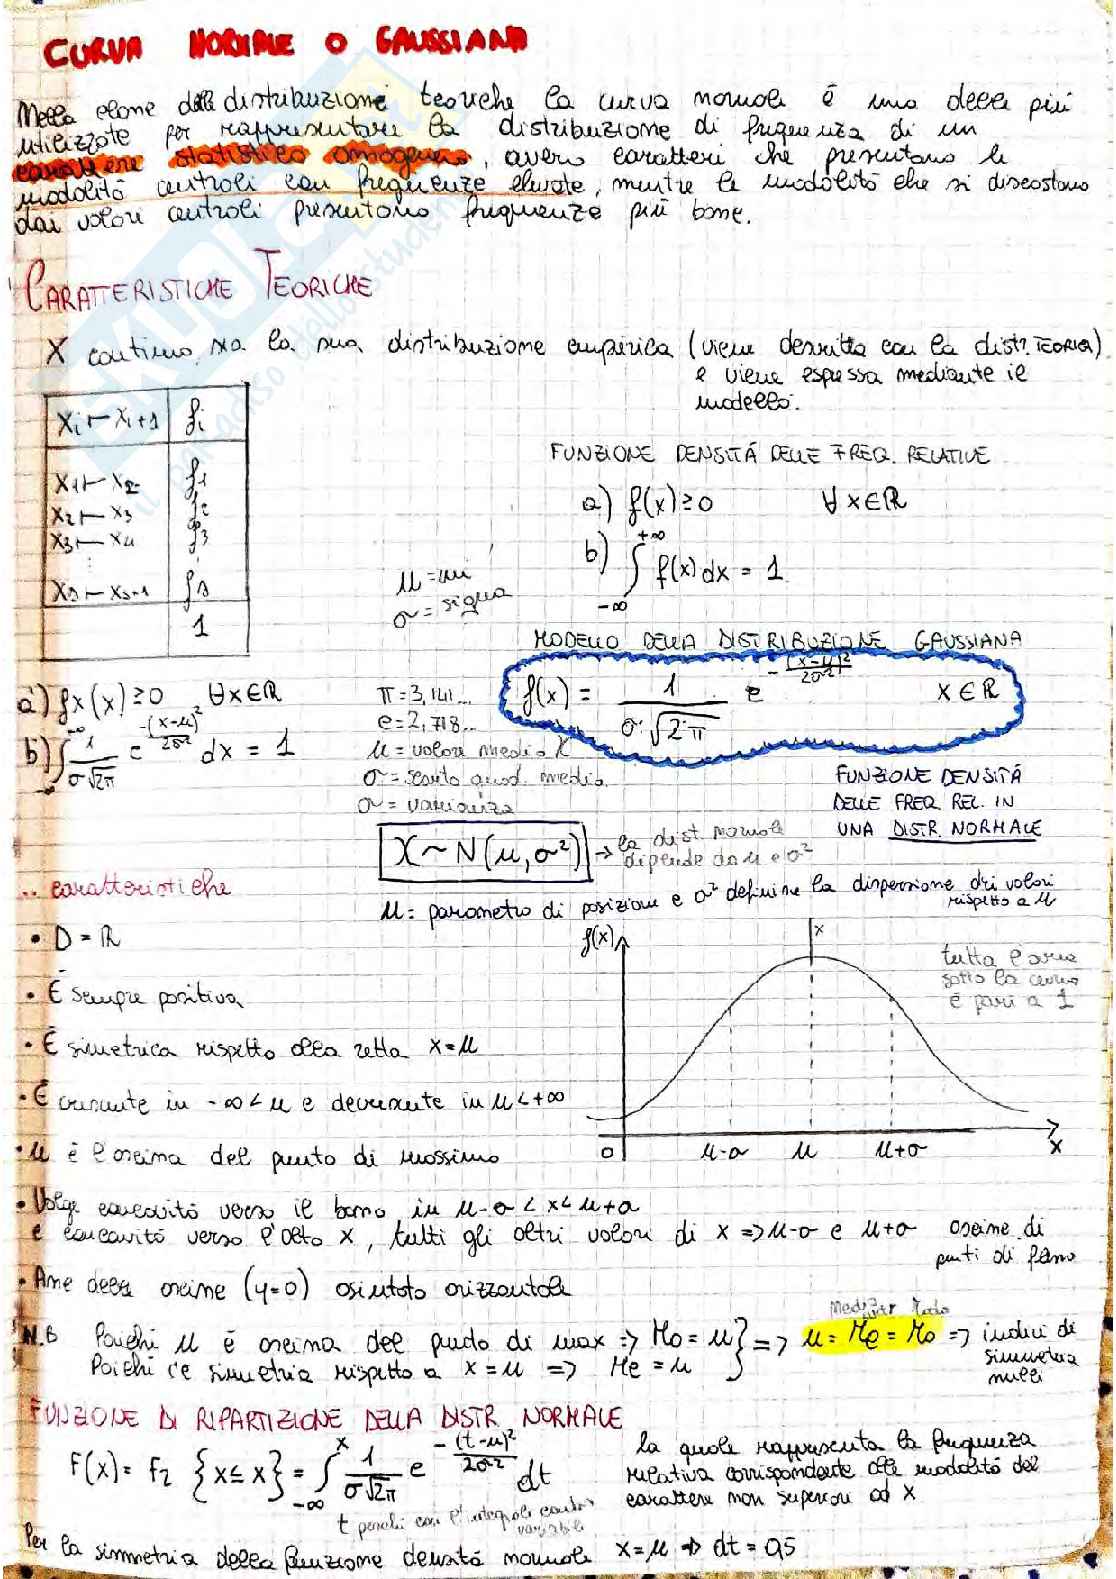 CURVA NORMALE O GAUSSIANA
Nella classe delle distribuzioni teoriche la curva normale è una delle più
utilizzate per rappresentare la distribuzione di frequenza di un
carattere statistico omogeneo, ovvero caratteri che presentano le
modalità centrali con frequenze elevate, mentre le modalità che si discostano
dai valori centrali presentano frequenze più basse.
CARATTERISTICHE TEORICHE
X continuo, sia la sua distribuzione empirica (viene descritta con la distr. TEORICA)
e viene espressa mediante il
modello:
xi ⊢ xi+1 fi
x1 ⊢ x2 f1
x2 ⊢ x3 f2
x3 ⊢ x4 f3
⋮
xs ⊢ xs+1 fs
1
FUNZIONE DENSITÁ DELLE FREQ. RELATIVE
a) f(x) ≥ 0 ∀ x ∈ ℝ
b) ∫ -∞ +∞ f(x) dx = 1
μ = mi
σ = sigma
MODELLO DELLA DISTRIBUZIONE GAUSSIANA
f(x) = 1 / σ·√2·π e -(x-μ)² / 2σ² x ∈ ℝ
a') fx(x) ≥ 0 ∀x ∈ ℝ
b') ∫ 1 / σ√2π e -(x-μ)² / 2σ² dx = 1
π = 3,141...
e = 2,718...
μ = valore medio X
σ = scarto quad. medio
σ = varianza
FUNZIONE DENSITÁ
DELLE FREQ. REL. IN
UNA DISTR. NORMALE
X ~ N(μ, σ²) → la dist. normale
dipende da μ e σ²
... caratteristiche
μ = parametro di posizione e σ² definisce la dispersione dei valori
rispetto a μ
• D = ℝ
• É sempre positiva
• É simetrica rispetto alla retta x = μ
• É crescente in -∞ < μ e decrescente in μ < +∞
• μ è l'ascissa del punto di massimo
f(x)
x
tutta l'area
sotto la curva
è pari a 1
0 μ-σ μ μ+σ x
• Volge concavità verso il basso in μ-σ < x < μ+σ
e concavità verso l'alto x, tutti gli altri valori di x => μ-σ e μ+σ ascisse di
punti di flesso
• Asse delle ascisse (y=0) asintoto orizzontale
N.B Poiché μ è ascissa del punto di max => Mo = μ } => μ = Me = Mo => indici di
simmetria
nulli
Poiché c'è simmetria rispetto a x = μ => Me = μ
FUNZIONE DI RIPARTIZIONE DELLA DISTR. NORMALE
F(x) = Fz {x ≤ x} = ∫ -∞ x 1 / σ√2π e -(t-μ)² / 2σ² dt
la quale rappresenta la frequenza
relativa corrispondente alle modalità del
carattere non superiore ad x
t perché con l'integrale cambia
variabile
Per la simmetria della funzione densità normale x = μ => dt = 0,5